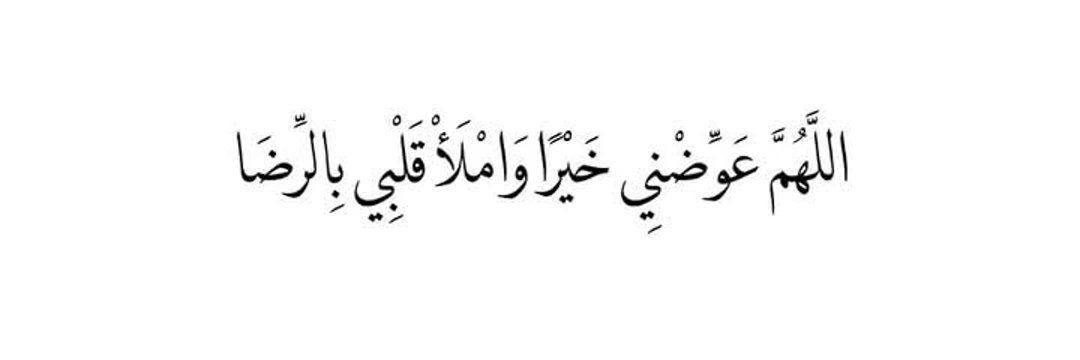 اللَّهُمَّ عَوِّضْنِي خَيْرًا وَامْلَأْ قَلْبِي بِالرِّضَا